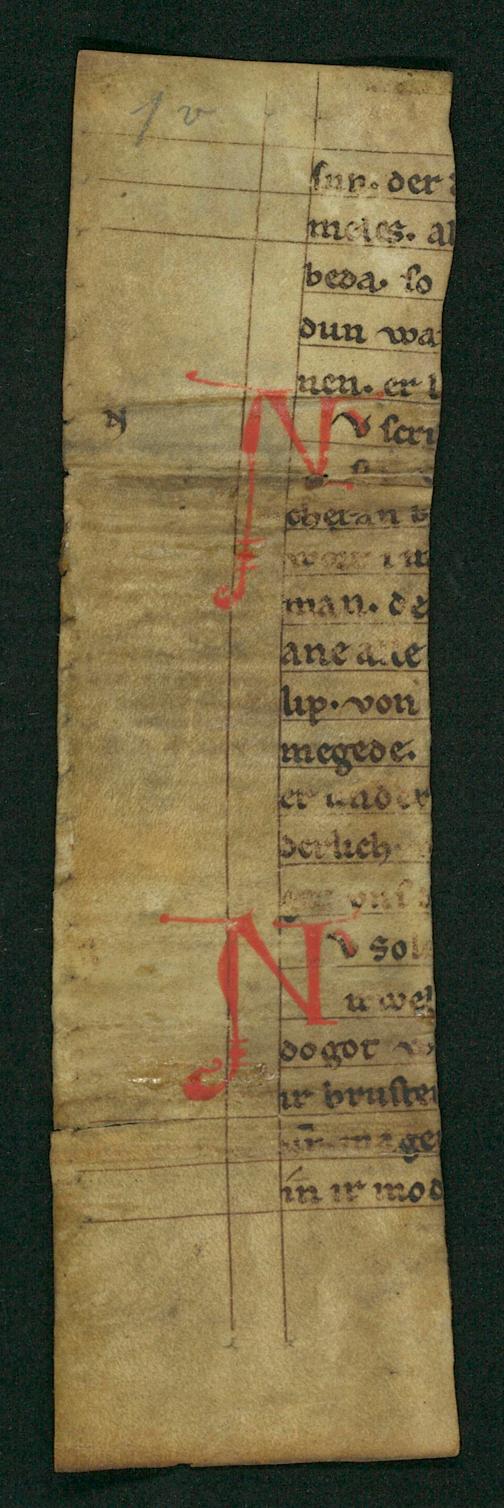 1v
sun. der
meies. al
beda. so
dun wa
nen. er
N
NV scri
cheran
man. de
ane alle
lip. von
megede.
er under
derlich
uns
NV sol
ir wel
do got
ir bruste
mage
in ir mod